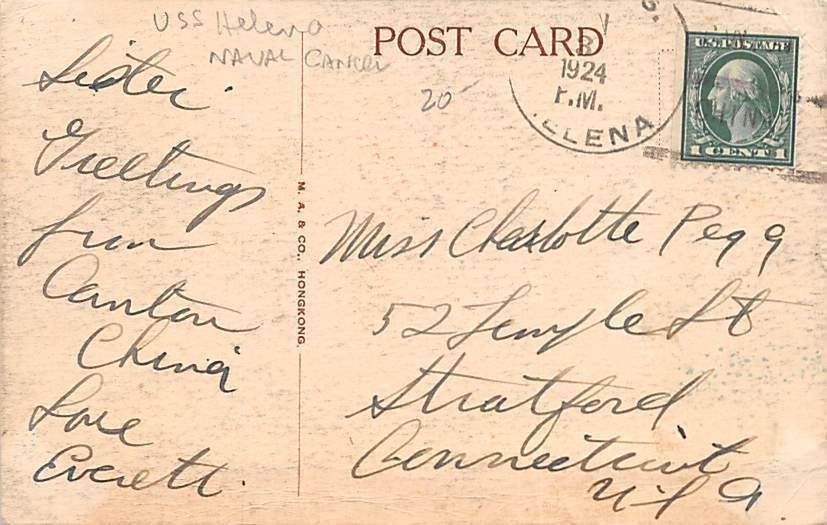 USS Helena
NAVAL Cancel
POST CARD
20
8
1924
P.M.
HELENA
U.S. POSTAGE
1 CENT 1
Sister.
Greetings
from
Canton
China
Love
Everett.
M. A. & CO., HONGKONG.
Miss Charlotte Pegg
52 Temple St
Stratford
Connecticut
U S A